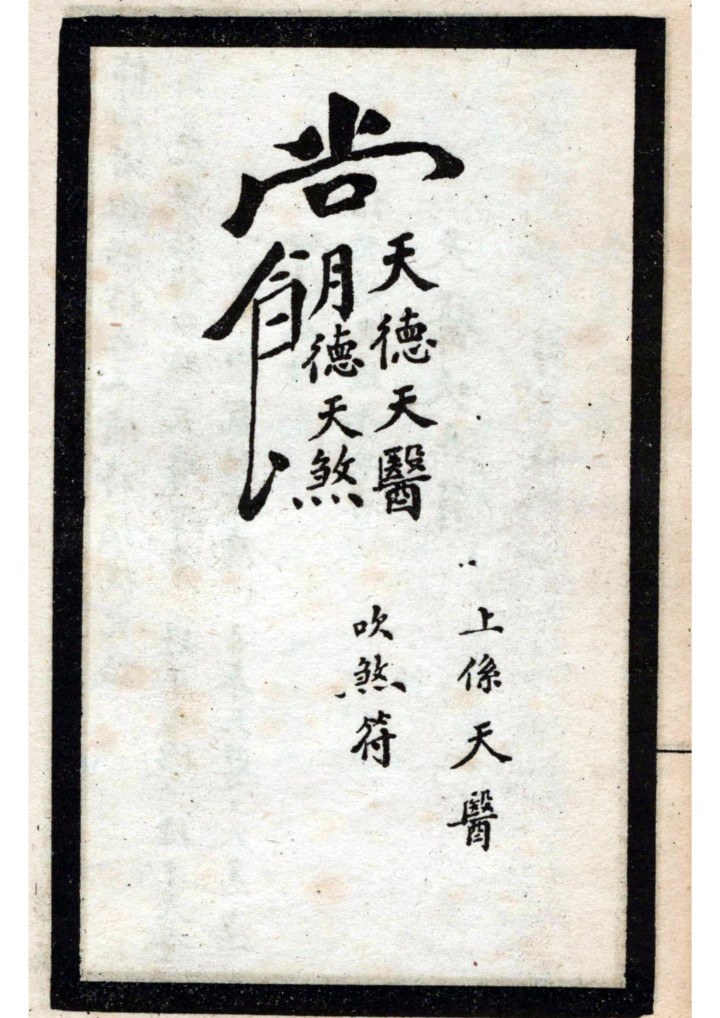 尚
天德天醫
月德天煞
上係天醫
吹煞符